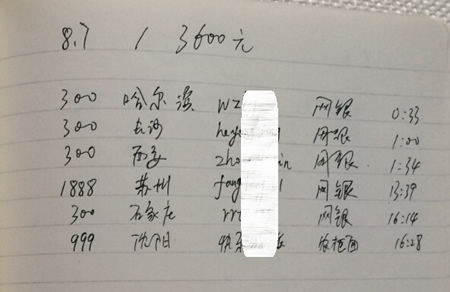 8.7 / 3600元
300 哈尔滨 wz 网银 0:33
300 长沙 he 网银 1:00
300 西安 zho in 网银 1:34
1888 苏州 fang 网银 13:39
300 石家庄 网银 16:14
999 沈阳 16:28